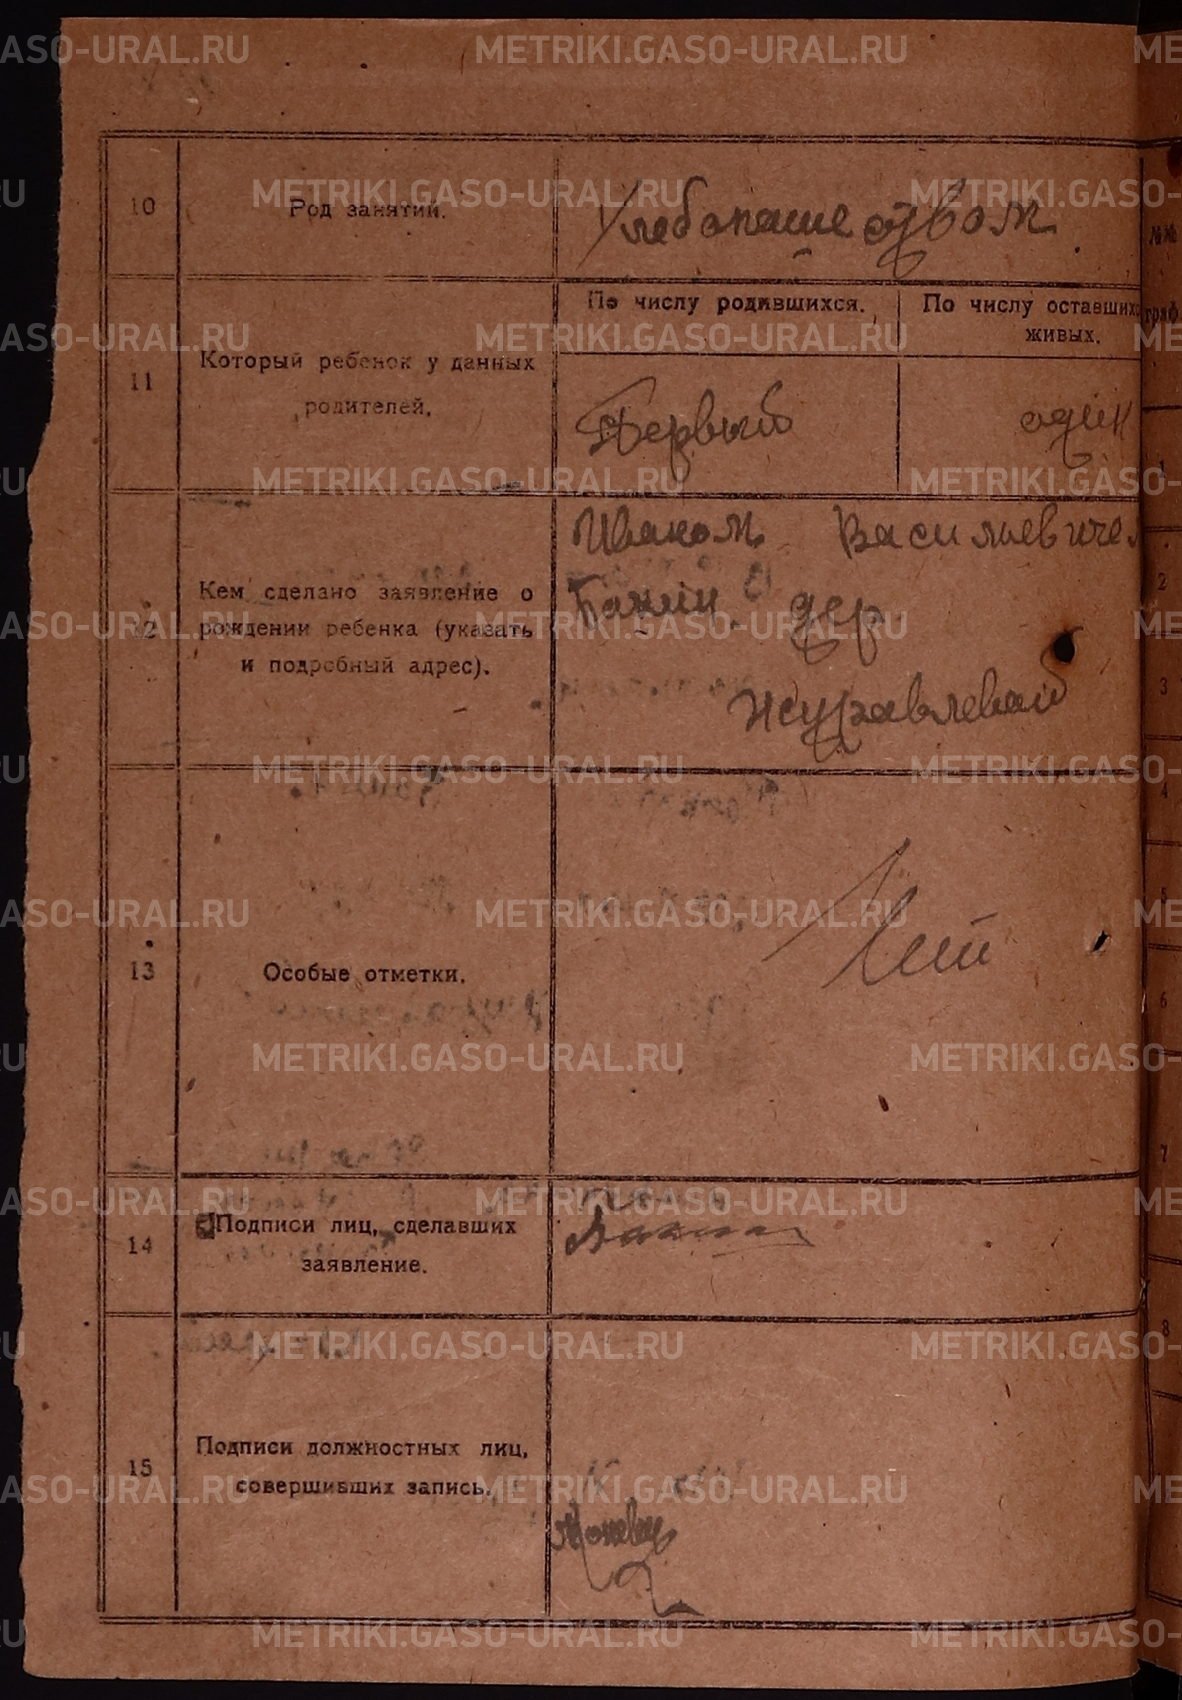 METRIKI.GASO-URAL.RU
10
Род занятий.
Хлебопашеством
11
Который ребенок у данных
родителей.
По числу родившихся.
По числу оставших
живых.
Первый
один
12
Кем сделано заявление о
рождении ребенка (указать
и подробный адрес).
Иваном Васильевичем
дер.
Журавлевой
13
Особые отметки.
Нет
14
Подписи лиц, сделавших
заявление.
15
Подписи должностных лиц,
совершивших запись.
№№
граф
1
2
3
4
5
6
7
8